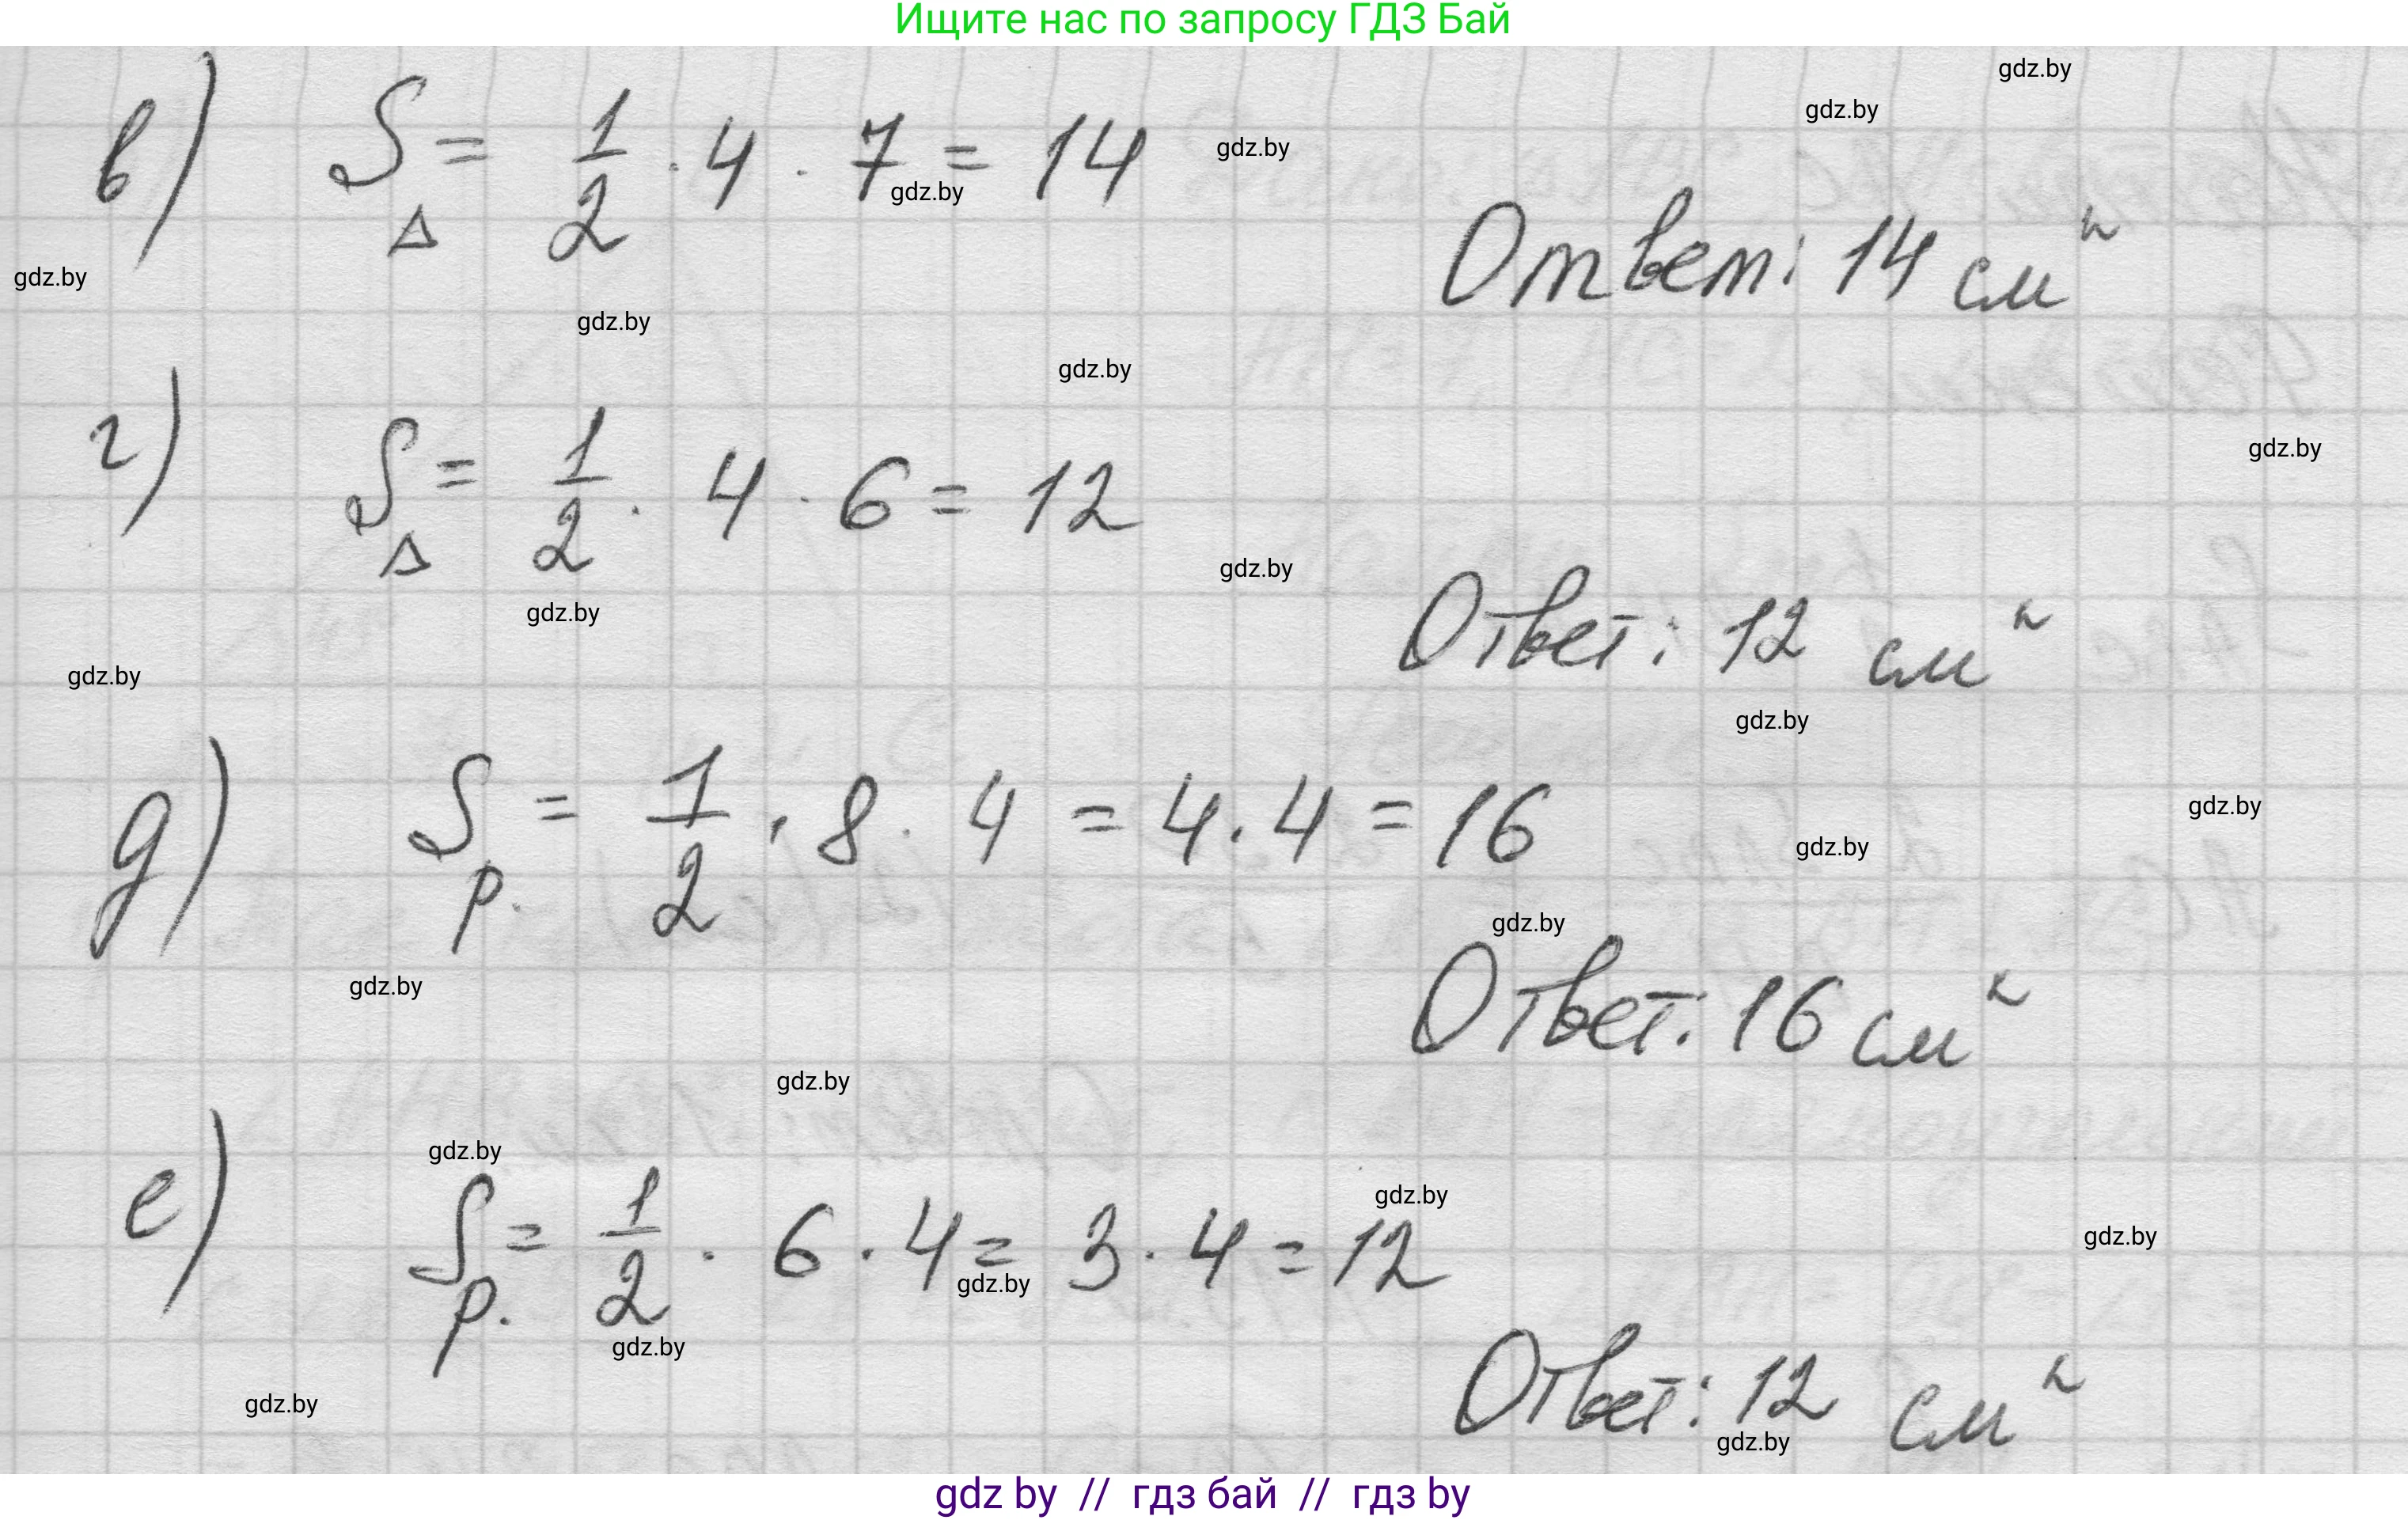 Ищите нас по запросу ГДЗ Бай
gdz.by
gdz.by
в) S△ = 1/2 · 4 · 7 = 14
gdz.by
gdz.by
Ответ: 14 см²
gdz.by
gdz.by
gdz.by
г) S△ = 1/2 · 4 · 6 = 12
gdz.by
gdz.by
gdz.by
Ответ: 12 см²
gdz.by
gdz.by
д) Sр. = 1/2 · 8 · 4 = 4 · 4 = 16
gdz.by
gdz.by
gdz.by
Ответ: 16 см²
gdz.by
gdz.by
gdz.by
е) Sр. = 1/2 · 6 · 4 = 3 · 4 = 12
gdz.by
gdz.by
gdz.by
gdz.by
Ответ: 12 см²
gdz.by
gdz.by
gdz by // гдз бай // гдз by